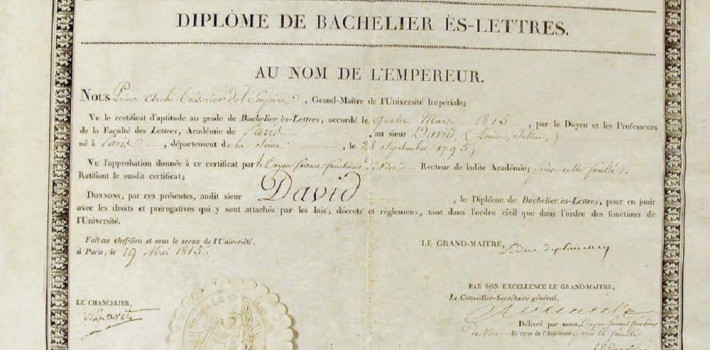 DIPLÔME DE BACHELIER ÈS-LETTRES.
AU NOM DE L'EMPEREUR.
NOUS Prince Archi-Trésorier de l'Empire, Grand-Maître de l'Université Impériale;
Vu le certificat d'aptitude au grade de Bachelier ès-Lettres, accordé le quatre Mars 1815, par le Doyen et les Professeurs
de la Faculté des Lettres, Académie de Paris, au sieur David
né à Paris, département de la Seine, le 28 septembre 1795;
Vu l'approbation donnée à ce certificat par le Doyen faisant fonctions de Recteur de ladite Académie;
Ratifiant le susdit certificat;
DONNONS, par ces présentes, audit sieur David, le Diplôme de Bachelier ès-Lettres, pour en jouir
avec les droits et prérogatives qui y sont attachés par les lois, décrets et règlemens, tant dans l'ordre civil que dans l'ordre des fonctions de
l'Université.
Fait au chef-lieu et sous le sceau de l'Université,
à Paris, le 19 Mai 1815.
LE GRAND-MAÎTRE,
PAR SON EXCELLENCE LE GRAND-MAÎTRE,
Le Conseiller-Secrétaire général.
LE CHANCELIER,
Délivré par nous, Doyen faisant fonctions
de Recteur de l'Académie